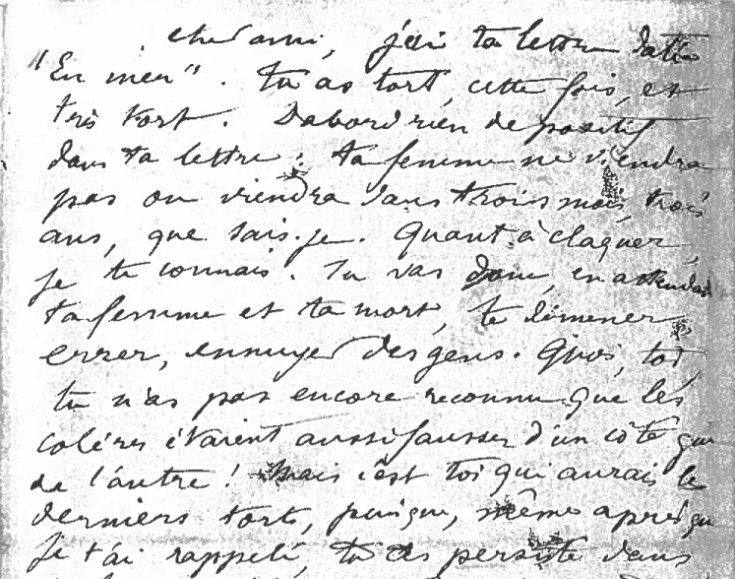 cher ami, j'ai ta lettre datée
"En mer". Tu as tort, cette fois, et
très tort. D'abord rien de positif
dans ta lettre : ta femme ne viendra
pas ou viendra dans trois mois, trois
ans, que sais-je. Quant à claquer,
je te connais. Tu vas donc, en attendant
ta femme et ta mort, te démener,
errer, ennuyer des gens. Quoi, toi,
tu n'as pas encore reconnu que les
colères étaient aussi fausses d'un côté que
de l'autre ! Mais c'est toi qui aurais les
derniers torts, puisque, même après que
je t'ai rappelé, tu as persisté dans